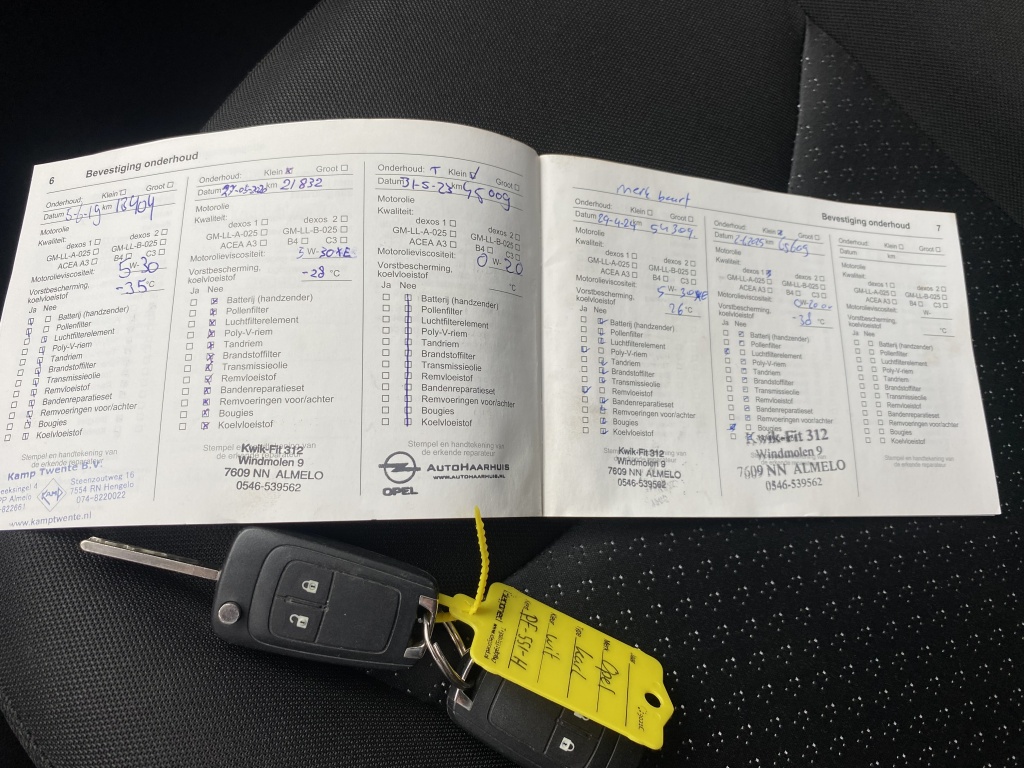 6
Bevestiging onderhoud
Onderhoud: Klein Groot
Datum km
Motorolie
Kwaliteit:
dexos 1 dexos 2
GM-LL-A-025 GM-LL-B-025
ACEA A3 B4 C3
Motorolieviscositeit: 5 W- 30
Vorstbescherming,
koelvloeistof -35 °C
Ja Nee
Batterij (handzender)
Pollenfilter
Luchtfilterelement
Poly-V-riem
Tandriem
Brandstoffilter
Transmissieolie
Remvloeistof
Bandenreparatieset
Remvoeringen voor/achter
Bougies
Koelvloeistof
Stempel en handtekening van
de erkende reparateur
Kamp Twente B.V.
Steenzoutweg 16
7554 RN Hengelo
074-8220022
KAMP
www.kamptwente.nl
Onderhoud: Klein Groot
Datum km 21832
Motorolie
Kwaliteit:
dexos 1 dexos 2
GM-LL-A-025 GM-LL-B-025
ACEA A3 B4 C3
Motorolieviscositeit: 5 W- 30
Vorstbescherming,
koelvloeistof -28 °C
Ja Nee
Batterij (handzender)
Pollenfilter
Luchtfilterelement
Poly-V-riem
Tandriem
Brandstoffilter
Transmissieolie
Remvloeistof
Bandenreparatieset
Remvoeringen voor/achter
Bougies
Koelvloeistof
Stempel en handtekening van
de erkende reparateur
Kwik-Fit 312
Windmolen 9
7609 NN ALMELO
0546-539562
Onderhoud: Klein Groot
Datum 31-5-23 km 45009
Motorolie
Kwaliteit:
dexos 1 dexos 2
GM-LL-A-025 GM-LL-B-025
ACEA A3 B4 C3
Motorolieviscositeit: 0 W- 20
Vorstbescherming,
koelvloeistof °C
Ja Nee
Batterij (handzender)
Pollenfilter
Luchtfilterelement
Poly-V-riem
Tandriem
Brandstoffilter
Transmissieolie
Remvloeistof
Bandenreparatieset
Remvoeringen voor/achter
Bougies
Koelvloeistof
Stempel en handtekening van
de erkende reparateur
OPEL
AUTOHAARHUIS
WWW.AUTOHAARHUIS.NL
Bevestiging onderhoud
7
merk beurt
Onderhoud: Klein Groot
Datum 29-4-24 km 54309
Motorolie
Kwaliteit:
dexos 1 dexos 2
GM-LL-A-025 GM-LL-B-025
ACEA A3 B4 C3
Motorolieviscositeit: 5 W- 30
Vorstbescherming,
koelvloeistof 36 °C
Ja Nee
Batterij (handzender)
Pollenfilter
Luchtfilterelement
Poly-V-riem
Tandriem
Brandstoffilter
Transmissieolie
Remvloeistof
Bandenreparatieset
Remvoeringen voor/achter
Bougies
Koelvloeistof
Kwik-Fit 312
Windmolen 9
7609 NN ALMELO
0546-539562
Onderhoud: Klein Groot
Datum km
Motorolie
Kwaliteit:
dexos 1 dexos 2
GM-LL-A-025 GM-LL-B-025
ACEA A3 B4 C3
Motorolieviscositeit:
Vorstbescherming,
koelvloeistof °C
Ja Nee
Batterij (handzender)
Pollenfilter
Luchtfilterelement
Poly-V-riem
Tandriem
Brandstoffilter
Transmissieolie
Remvloeistof
Bandenreparatieset
Remvoeringen voor/achter
Bougies
Kwik-Fit 312
Windmolen 9
7609 NN ALMELO
0546-539562
Onderhoud: Klein Groot
Datum km
Motorolie
Kwaliteit:
dexos 1 dexos 2
GM-LL-A-025 GM-LL-B-025
ACEA A3 B4 C3
Motorolieviscositeit: W-
Vorstbescherming,
koelvloeistof °C
Ja Nee
Batterij (handzender)
Pollenfilter
Luchtfilterelement
Poly-V-riem
Tandriem
Brandstoffilter
Transmissieolie
Remvloeistof
Bandenreparatieset
Remvoeringen voor/achter
Bougies
Koelvloeistof
Stempel en handtekening van
de erkende reparateur
Merk Opel
Type Karl
Kleur Wit
PF-551-H